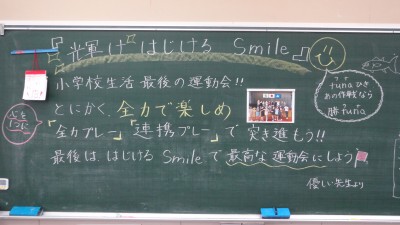 『光輝け はじける Smile』
小学校生活 最後の運動会!!
とにかく 全力で楽しめ
「全力プレー」「連携プレー」で 突き進もう!!
最後は、はじける Smile で 最高な運動会にしよう
優しい先生より
心を
1つに
ツナ
tuna ひき
あの作戦なら
勝 tuna